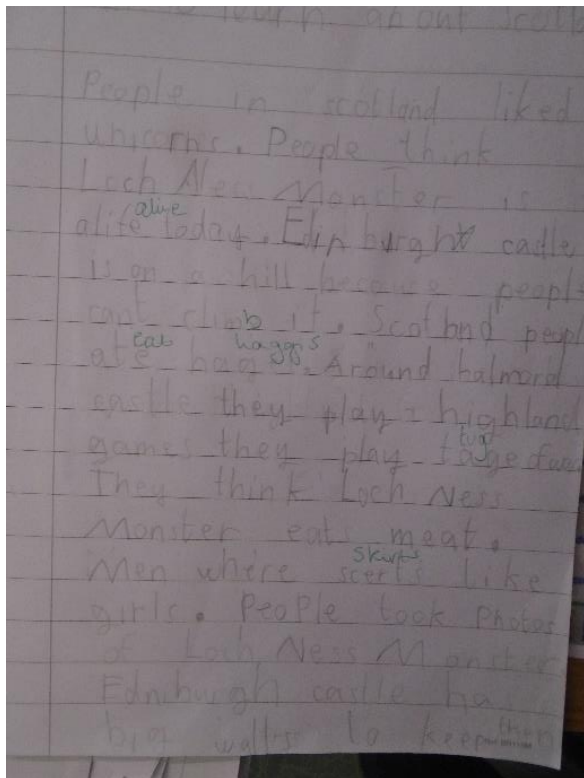 about Scotl
People in scotland liked
unicorns. People think
Loch Ness Monster is
alive
alife today. Edinburght castle
is on a hill because people
cant climb it. Scotland peopl
eat haggis
ate hag . Around balmord
castle they play highland
games they play tug
They think Loch Ness
Monster eats meat.
skirts
Men where scerts like
girls. People took Photos
of Loch Ness Monster
Edniburgh castle ha
big walls to keep them